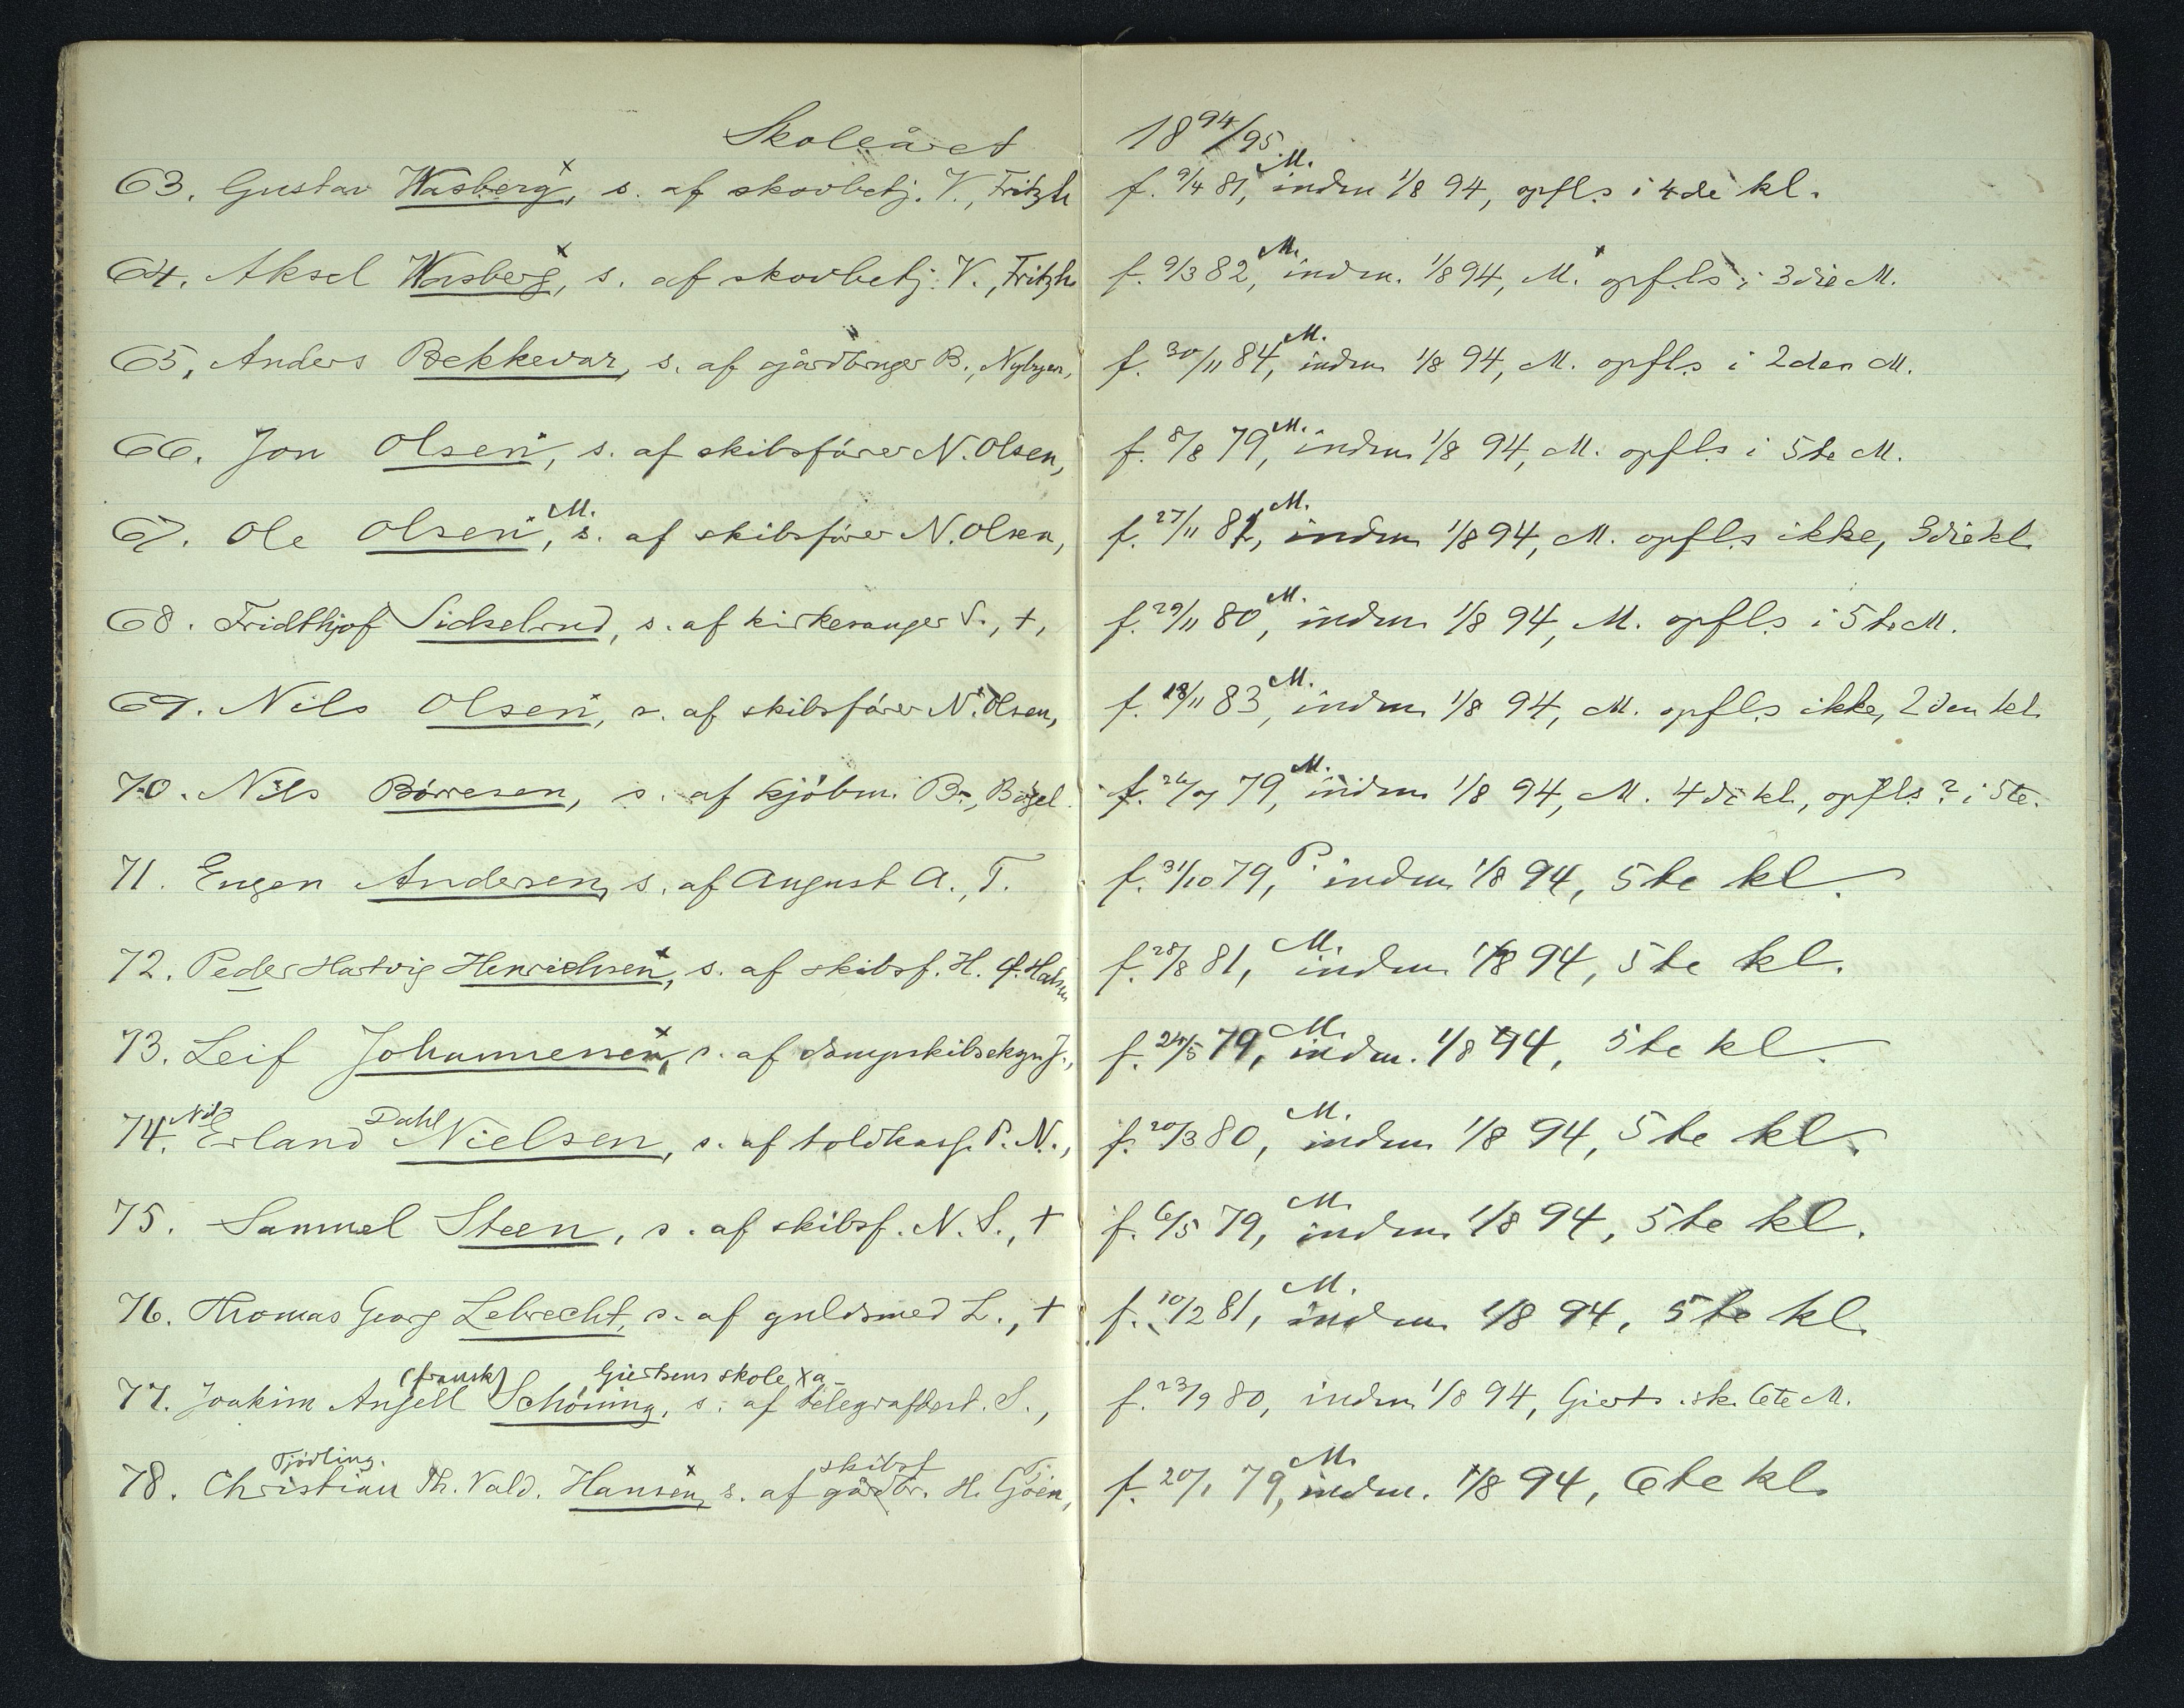 Skoleåret 18 94/95.
63. Gustav Wasberg x, s. af skovbetj. V., Fritzh f. 9/4 81, M. indm 1/8 94, opfl.s i 4de kl.
64. Aksel Wasberg x, s. af skovbetj. V., Fritzh. f. 9/3 82, M. indm. 1/8 94, M. opfl.s i 3die M.
65, Anders Bekkevar, s. af gårdbruger B., Nybyen, f. 30/11 84, M. indm 1/8 94, M. opfl.s i 2den M.
66. Jon Olsen, s. af skibsfører N. Olsen, f. 8/8 79, M. indm 1/8 94, M. opfl.s i 5te M.
67. Ole Olsen, M. s. af skibsfører N. Olsen, f. 27/11 82, M. indm 1/8 94, M. opfl.s ikke, 3die kl.
68. Fridthjof Sidselrud, s. af kirkesanger S., +, f. 29/11 80, M. indm 1/8 94, M. opfl.s i 5te M.
69. Nils Olsen, s. af skibsfører N. Olsen, f. 18/11 83, M. indm 1/8 94, M. opfl.s ikke, 2den kl.
70. Nils Börresen, s. af kjöbm. B., f. 79, M. indm 1/8 94, M. 4de kl., opfl.s ? i 5te.
71. Eugen Andersen, s. af August A., T. f. 31/10 79, P. indm 1/8 94, 5te kl.
72. Peder Hartvig Henrichsen x, s. af skibsf. H. f. 28/8 81, M. indm 1/8 94, 5te kl.
73. Leif Johannessen x, s. af J., f. 24/5 79, M. indm. 1/8 94, 5te kl.
Nils Dahl
74. Erland Nielsen, s. af toldkass. P. N., f. 20/3 80, M. indm 1/8 94, 5te kl.
75. Samuel Steen, s. af skibsf. N. S., + f. 6/5 79, M. indm 1/8 94, 5te kl.
76. Thomas Georg Lebrecht, s. af guldsmed L., + f. 10/2 81, M. indm 1/8 94, 5te kl.
(fransk) Giertsens skole x a-
77. Joakim Angell Schöning, s. af telegrafbest. S., f. 23/9 80, indm 1/8 94, Gierts. sk. 6te M.
Tjödling. skibsf
78. Christian Th. Vald. Hansen x, s. af gårdbr. H. f. 20/1 79, M. indm. 1/8 94, 6te kl.